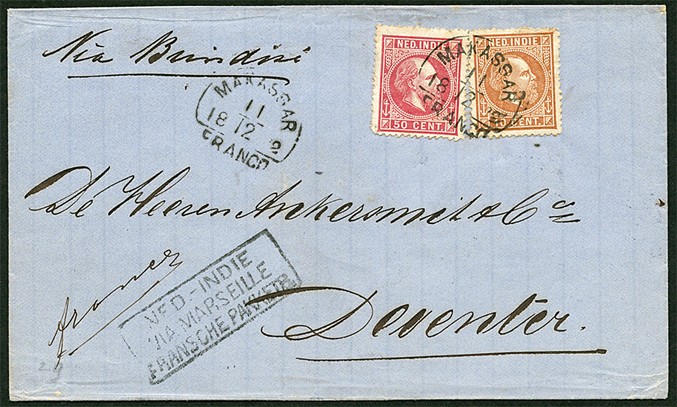 Via Brindisi
NED. INDIE
50 CENT.
NED. INDIE
CENT.
MAKASSAR
11
12
18 2
FRANCO
MAKASSAR
11
12
18
FRANCO
De Heeren Ankersmit & Co
franco
NED-INDIE
VIA MARSEILLE
FRANSCHE PAKKETB.
Deventer.